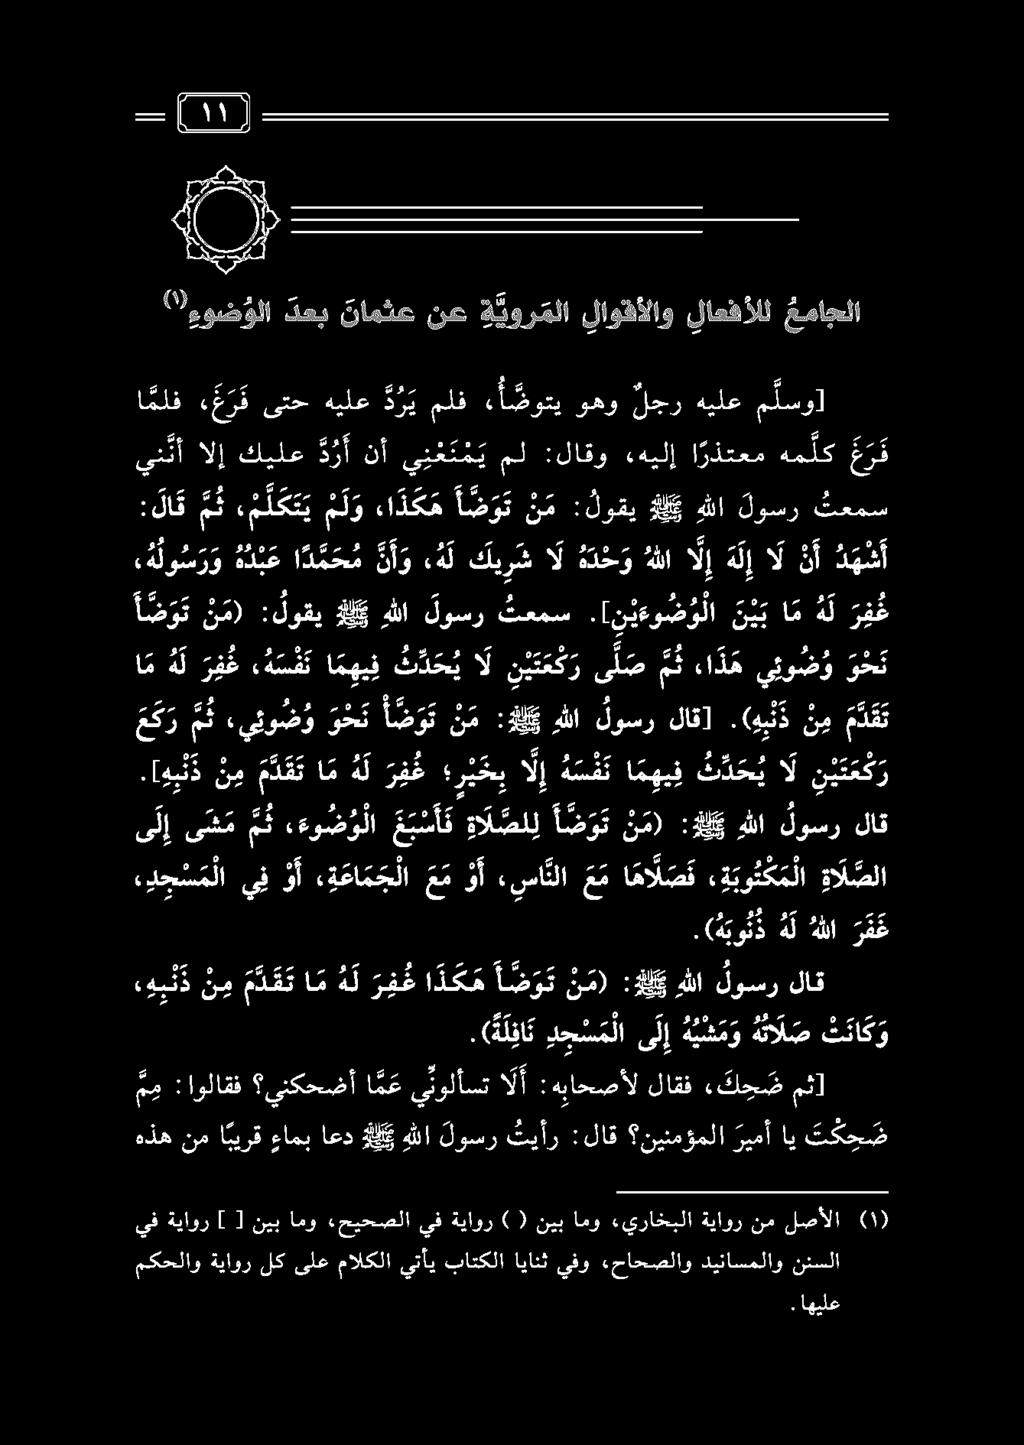 ١١
الجامعُ للأفعالِ والأقوالِ المَرويَّةِ عن عثمانَ بعدَ الوُضوءِ(١)
[وسلَّم عليه رجلٌ وهو يتوضَّأُ، فلم يَرُدَّ عليه حتى فَرَغَ، فلمَّا
فَرَغَ كلَّمه معتذرًا إليه، وقال: لم يَمْنَعْنِي أن أَرُدَّ عليك إلا أنَّني
سمعتُ رسولَ اللهِ ﷺ يقولُ: مَنْ تَوَضَّأَ هَكَذَا، وَلَمْ يَتَكَلَّمْ، ثُمَّ قَالَ:
أَشْهَدُ أَنْ لَا إِلَهَ إِلَّا اللهُ وَحْدَهُ لَا شَرِيكَ لَهُ، وَأَنَّ مُحَمَّدًا عَبْدُهُ وَرَسُولُهُ،
غُفِرَ لَهُ مَا بَيْنَ الْوُضُوءَيْنِ]. سمعتُ رسولَ اللهِ ﷺ يقولُ: (مَنْ تَوَضَّأَ
نَحْوَ وُضُوئِي هَذَا، ثُمَّ صَلَّى رَكْعَتَيْنِ لَا يُحَدِّثُ فِيهِمَا نَفْسَهُ، غُفِرَ لَهُ مَا
تَقَدَّمَ مِنْ ذَنْبِهِ). [قال رسولُ اللهِ ﷺ: مَنْ تَوَضَّأَ نَحْوَ وُضُوئِي، ثُمَّ رَكَعَ
رَكْعَتَيْنِ لَا يُحَدِّثُ فِيهِمَا نَفْسَهُ إِلَّا بِخَيْرٍ؛ غُفِرَ لَهُ مَا تَقَدَّمَ مِنْ ذَنْبِهِ].
قال رسولُ اللهِ ﷺ: (مَنْ تَوَضَّأَ لِلصَّلَاةِ فَأَسْبَغَ الْوُضُوءَ، ثُمَّ مَشَى إِلَى
الصَّلَاةِ الْمَكْتُوبَةِ، فَصَلَّاهَا مَعَ النَّاسِ، أَوْ مَعَ الْجَمَاعَةِ، أَوْ فِي الْمَسْجِدِ،
غَفَرَ اللهُ لَهُ ذُنُوبَهُ).
قال رسولُ اللهِ ﷺ: (مَنْ تَوَضَّأَ هَكَذَا غُفِرَ لَهُ مَا تَقَدَّمَ مِنْ ذَنْبِهِ،
وَكَانَتْ صَلَاتُهُ وَمَشْيُهُ إِلَى الْمَسْجِدِ نَافِلَةً).
[ثم ضَحِكَ، فقال لأصحابِه: أَلَا تسألونِّي عَمَّا أضحكني؟ فقالوا: مِمَّ
ضَحِكْتَ يا أميرَ المؤمنين؟ قال: رأيتُ رسولَ اللهِ ﷺ دعا بماءٍ قريبًا من هذه
(١) الأصل من رواية البخاري، وما بين ( ) رواية في الصحيح، وما بين [ ] رواية في
السنن والمسانيد والصحاح، وفي ثنايا الكتاب يأتي الكلام على كل رواية والحكم
عليها.